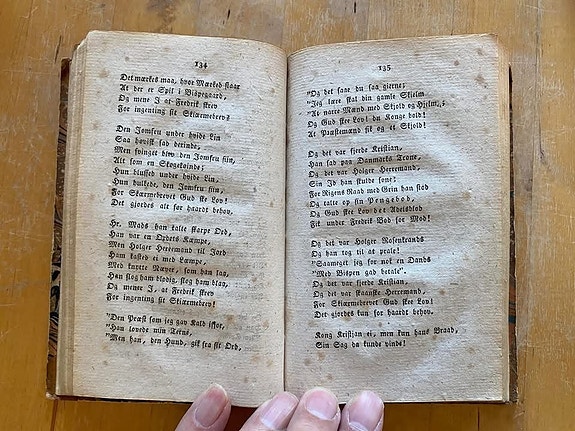 134
Det mærkes maa, hvor Mærked staar
At der er Spil i Bispegaard,
Og mene I at Fredrik skrev
For ingenting sit Skiærmebrev?
Den Jomfru under hvide Lin
Saa høvisk sad derinde,
Men svinget blev den Jomfru fiin,
Alt som en Skøgeqvinde;
Hun bluffed under hvide Lin,
Hun hulkede, den Jomfru fiin;
For Skærmebrevet Gud skee Lov!
Det gjordes alt for haardt behov.
Hr. Mads han talte skarpe Ord,
Han var en Ordets Kæmpe,
Men Holger Herremand til Jord
Ham kasted ei med Læmpe,
Med knytte Næver, som han lag,
Han slog ham blodig, steg ham blaa,
Og mener J, at Fredrik skrev
For ingenting sit Skiærmebrev?
"Den Præst som jeg gav Kald istor,
"Han lovede min Terne,
"Men han, den Hund, gik fra sit Ord,
135
"Og det saae du saa gierne;
"Jeg lære skal din gamle Skielm
"At narre Mænd med Skjold og Hjelm,"
Og Gud skee Lov! du Konge bold!
At Præstemænd fik og et Skjold!
Og det var fjerde Kristian,
Han sad paa Danmarks Trone,
Og det var Holger Herremand,
Sin Id han skulde sone;
For Rigens Raad med Grin han stod
Og talte op sin Pengebod,
Og Gud skee Lov det Adelsblod
Fik under Fredrik Bod for Mod!
Og det var Holger Rosenkrands
Og han tog til at prale:
"Saameget jeg for nok en Dands
"Med Bispen gad betale".
Og det var fjerde Kristian,
Og det var skaanske Herremand,
For Skiærmebrevet Gud skee Lov!
Det gjordes kun for haardt behov.
Kong Kristian ei, men kun hans Braad,
Sin Sag da kunde vinde!